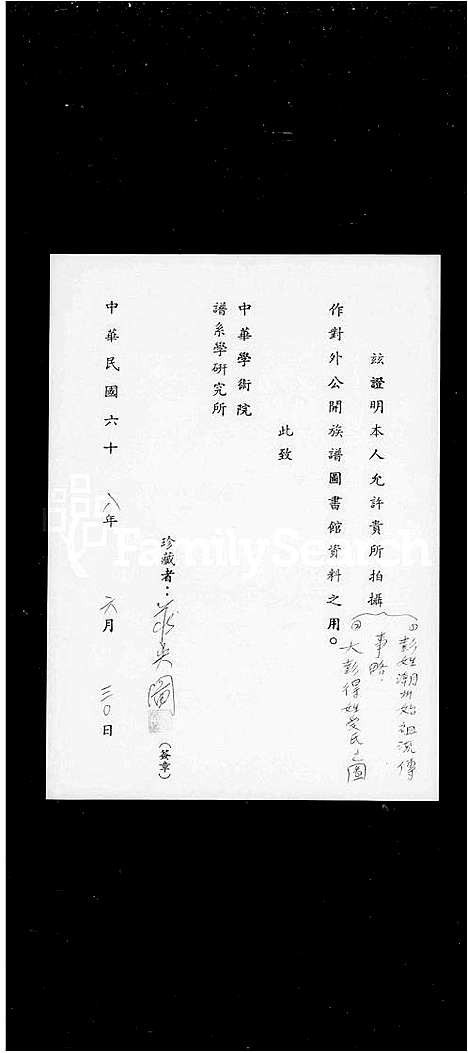 玆證明本人允許貴所拍攝
㈠彭姓潮州始祖流傳
事略.
㈡大彭得姓受氏之圖
作對外公開族譜圖書館資料之用。
此致
中華學術院
譜系學研究所
珍藏者：
(簽章)
中華民國六十八年 六月 三〇日
FamilySearch